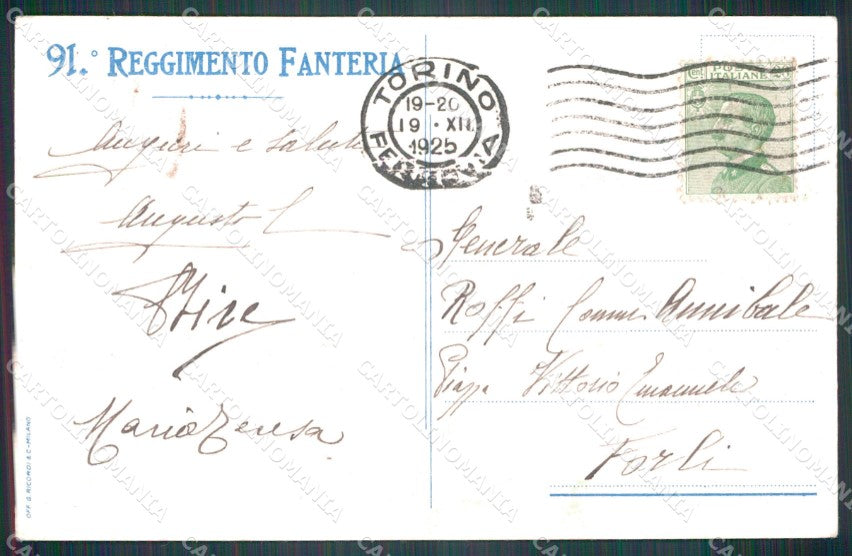 91.° REGGIMENTO FANTERIA
Auguri e saluti
Augusto
Maria Teresa
OFF. G. RICORDI & C-MILANO
TORINO
19-20
19 · XII
1925
FERROVIA
POSTE
ITALIANE
Generale
Roffi Comm Annibale
Piazza Vittorio Emanuele
Forlì
CARTOLINOMANIA